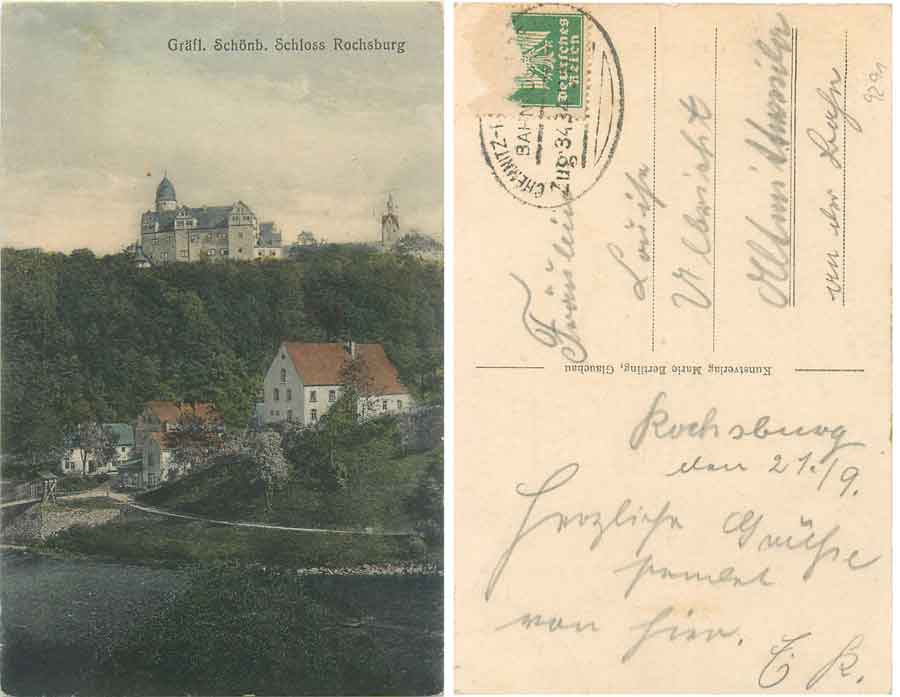 Gräfl. Schönb. Schloss Rochsburg
Deutsches
Reich
CHEMNITZ-
BAHN
Zug 343
Fräulein
Louise
Ulbricht
an der Bahn
929
Kunstverlag Marie Bertling, Glauchau
Rochsburg
den 21./9.
Herzliche Grüße
sendet
von hier.
E R.